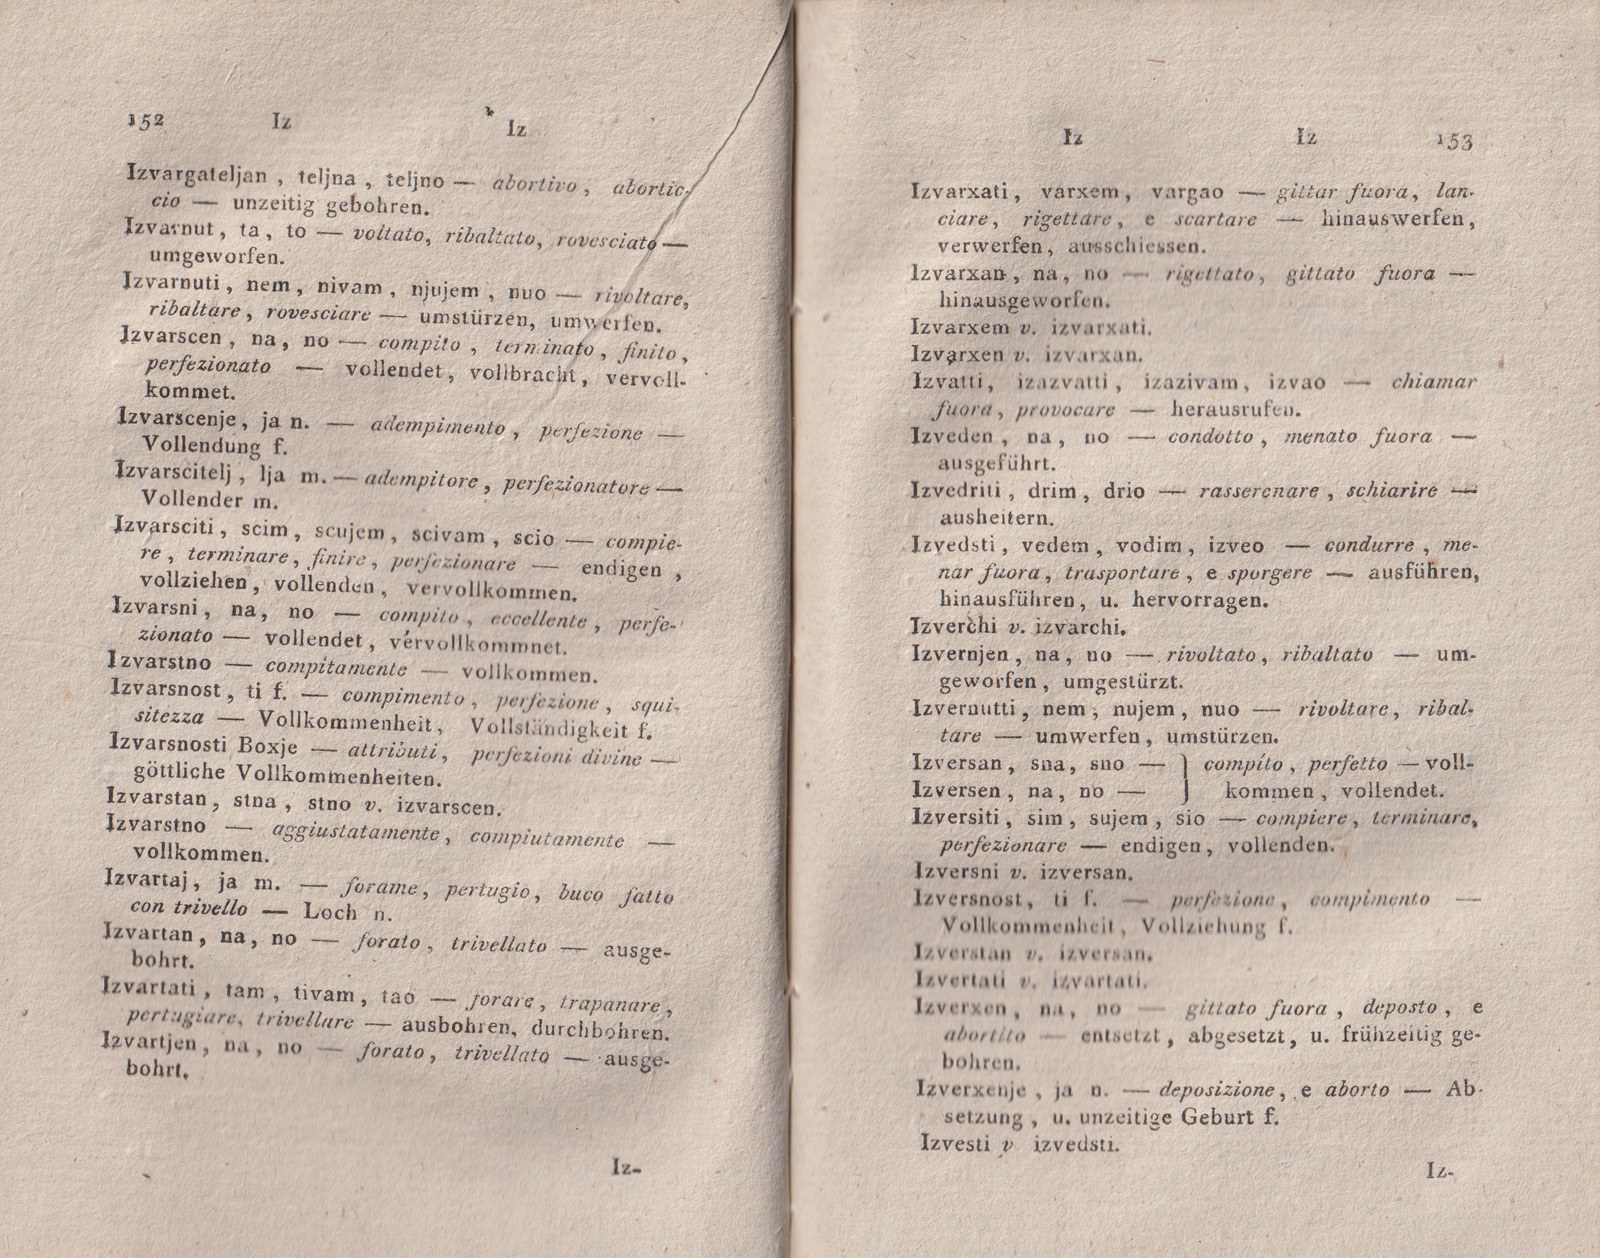 152 Iz Iz
Izvargateljan , teljna , teljno — abortivo , abortic-
cio — unzeitig gebohren.
Izvarnut , ta , to — voltato, ribaltato, rovesciato —
umgeworfen.
Izvarnuti , nem , nivam , njujem , nuo — rivoltare,
ribaltare , rovesciare — umstürzen, umwerfen.
Izvarscen , na , no — compito , terminato , finito ,
perfezionato — vollendet , vollbracht , vervoll-
kommet.
Izvarscenje , ja n. — adempimento , perfezione —
Vollendung f.
Izvarscitelj , lja m. — adempitore , perfezionatore —
Vollender m.
Izvarsciti , scim , scujem , scivam , scio — compie-
re , terminare , finire , perfezionare — endigen ,
vollziehen , vollenden , vervollkommen.
Izvarsni , na , no — compito , eccellente , perfe-
zionato — vollendet , vervollkommnet.
Izvarstno — compitamente — vollkommen.
Izvarsnost , ti f. — compimento , perfezione , squi-
sitezza — Vollkommenheit , Vollständigkeit f.
Izvarsnosti Boxje — attributi , perfezioni divine —
göttliche Vollkommenheiten.
Izvarstan , stna , stno v. izvarscen.
Izvarstno — aggiustatamente , compiutamente —
vollkommen.
Izvartaj , ja m. — forame , pertugio , buco fatto
con trivello — Loch n.
Izvartan , na , no — forato , trivellato — ausge-
bohrt.
Izvartati , tam , tivam , tao — forare , trapanare ,
pertugiare, trivellare — ausbohren, durchbohren.
Izvartjen , na , no — forato , trivellato — ausge-
bohrt.
Iz-
Iz Iz 153
Izvarxati , varxem , vargao — gittar fuora , lan-
ciare , rigettare , e scartare — hinauswerfen ,
verwerfen , ausschiessen.
Izvarxan , na , no — rigettato , gittato fuora —
hinausgeworfen.
Izvarxem v. izvarxati.
Izvarxen v. izvarxan.
Izvatti , izazvatti , izazivam , izvao — chiamar
fuora , provocare — herausrufen.
Izveden , na , no — condotto , menato fuora —
ausgeführt.
Izvedriti , drim , drio — rasserenare , schiarire —
ausheitern.
Izvedsti , vedem , vodim , izveo — condurre , me-
nar fuora , trasportare , e sporgere — ausführen,
hinausführen , u. hervorragen.
Izverchi v. izvarchi.
Izvernjen , na , no — rivoltato , ribaltato — um-
geworfen , umgestürzt.
Izvernutti , nem , nujem , nuo — rivoltare , ribal-
tare — umwerfen , umstürzen.
Izversan , sna , sno — } compito , perfetto — voll-
Izversen , na , no — } kommen , vollendet.
Izversiti , sim , sujem , sio — compiere , terminare,
perfezionare — endigen , vollenden.
Izversni v. izversan.
Izversnost , ti f. — perfezione , compimento —
Vollkommenheit , Vollziehung f.
Izverstan v. izversan.
Izvertati v. izvartati.
Izverxen , na , no — gittato fuora , deposto , e
abortito — entsetzt , abgesetzt , u. frühzeitig ge-
bohren.
Izverxenje , ja n. — deposizione , e aborto — Ab-
setzung , u. unzeitige Geburt f.
Izvesti v izvedsti.
Iz-